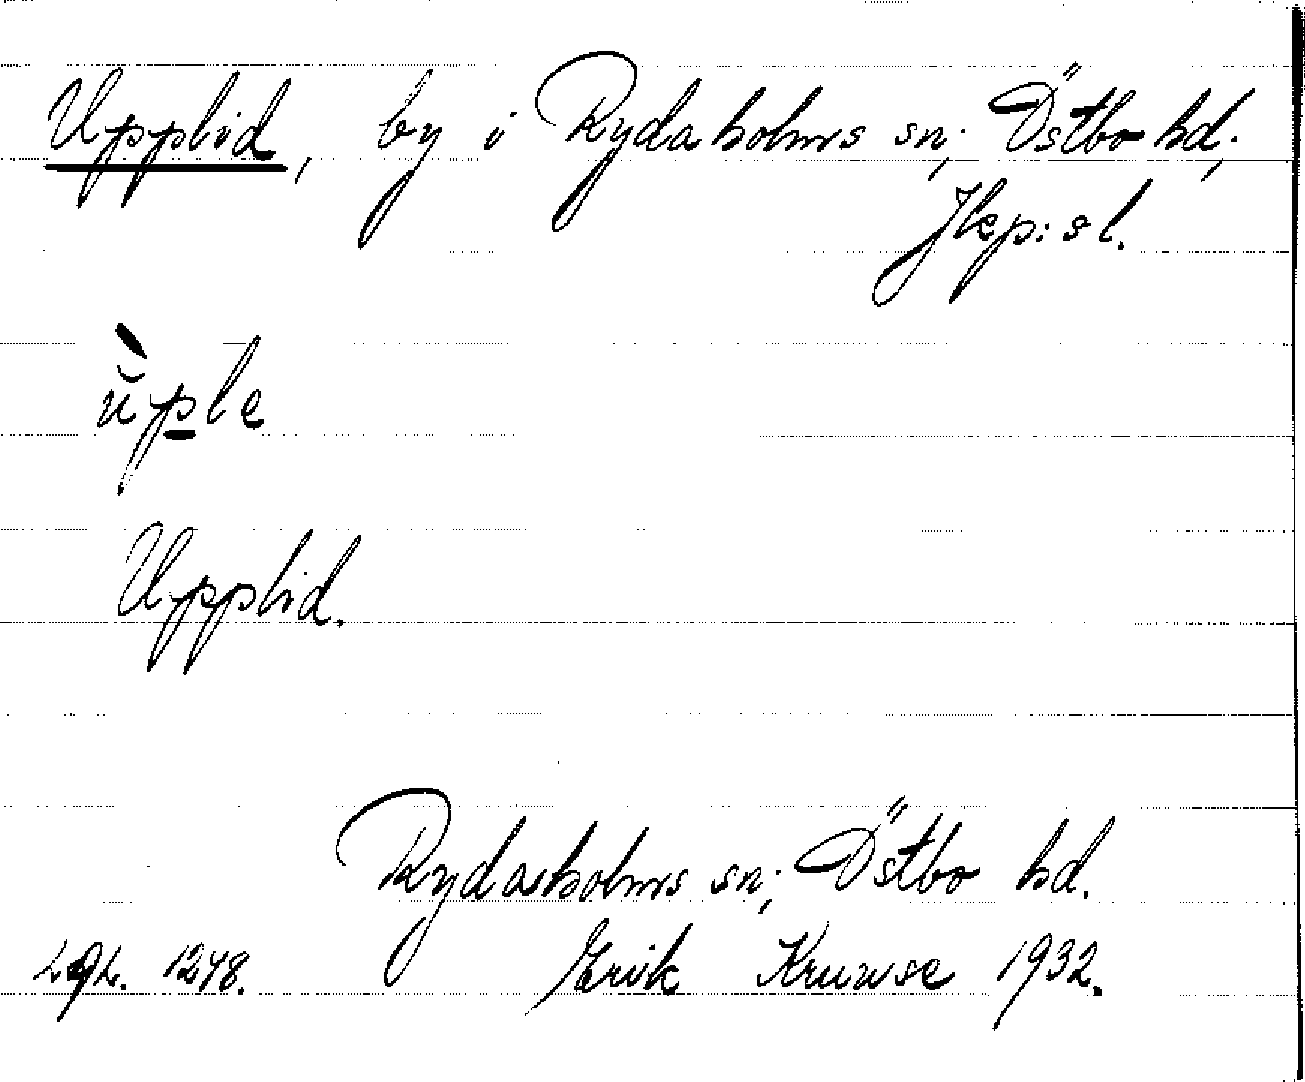 Upplid, by i Rydaholms sn; Östbo hd;
Jkp:s l.
ùple
Upplid.
Rydaholms sn; Östbo hd.
1248. Erik Kruuse 1932.